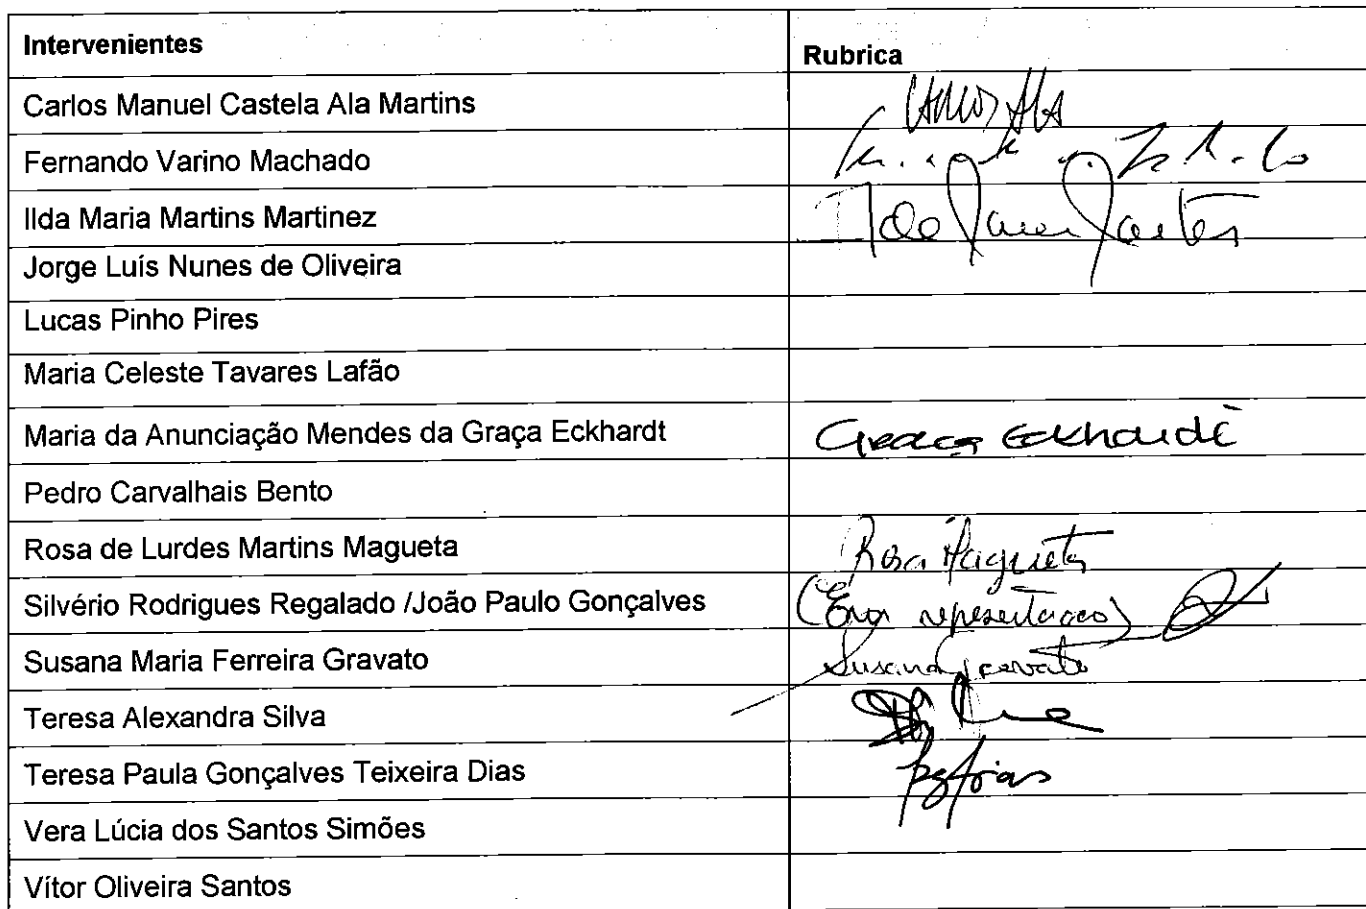 Intervenientes Rubrica
Carlos Manuel Castela Ala Martins Carlos Ala
Fernando Varino Machado
Ilda Maria Martins Martinez
Jorge Luís Nunes de Oliveira
Lucas Pinho Pires
Maria Celeste Tavares Lafão
Maria da Anunciação Mendes da Graça Eckhardt Graça Eckhardt
Pedro Carvalhais Bento
Rosa de Lurdes Martins Magueta Rosa Magueta
Silvério Rodrigues Regalado /João Paulo Gonçalves
Susana Maria Ferreira Gravato Susana Gravato
Teresa Alexandra Silva
Teresa Paula Gonçalves Teixeira Dias
Vera Lúcia dos Santos Simões
Vítor Oliveira Santos